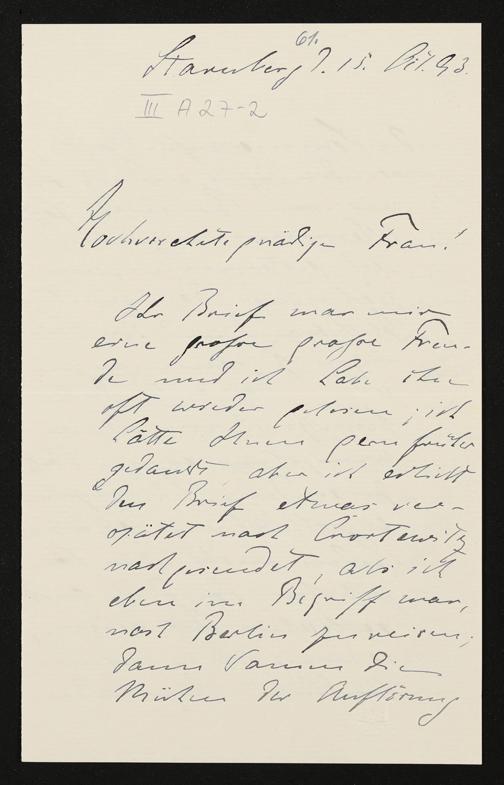 61.
Starnberg d. 15. Okt. 93.
III A 27-2
Hochverehrte gnädige Frau!
Ihr Brief war mir
eine große große Freu-
de und ich habe ihn
oft wieder gelesen; ich
hätte Ihnen gern früher
gedankt, aber ich erhielt
den Brief etwas ver-
spätet nach Crostewitz
nachgesendet, als ich
eben im Begriff war,
nach Berlin zu reisen;
dann kamen die
Mühen der Auflösung